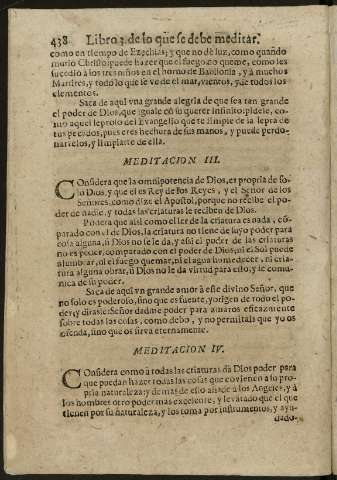 438 Libro 3. de lo q̃ se debe meditar.
como en tiempo de Ezechias; y que no dè luz, como quãndo
murio Christo: puede hazer que el fuego no queme, como les
sucediò à los tres niños en el horno de Babilonia, y à muchos
Martires, y todo lo que se ve de el mar, vientos, y de todos los
elementos.
Saca de aqui vna grande alegria de que sea tan grande
el poder de Dios, que iguale cõ su querer infinito: pidele, co-
mo aquel leproso del Evangelio que te limpie de la lepra de
tus pecados, pues eres hechura de sus manos, y puede perdo-
nartelos, y limpiarte de ella.
MEDITACION III.
COnsidera que la omnipotencia de Dios, es propria de so-
lo Dios, y que el es Rey de los Reyes, y el Señor de los
Señores, como dize el Apostol, porque no recibe el po-
der de nadie, y todas las criaturas le reciben de Dios.
Pondera que assi como el ser de la criatura es nada, cõ-
parado con el de Dios, la criatura no tiene de suyo poder para
cosa alguna, si Dios no se le da, y assi el poder de las criaturas
no es poder, comparado con el poder de Dios, ni el Sol puede
alumbrar, ni el fuego quemar, ni el agua humedecer, ni cria-
tura alguna obrar, si Dios no le da virtud para ello, y le comu-
nica de su poder.
Saca de aqui vn grande amor à este divino Señor, que
no solo es poderoso, sino que es fuente, y origen de todo el po-
der, y dirasle: Señor dadme poder para amaros eficazmente
sobre todas las cosas, como debo, y no permitais que yo os
ofenda, sino que os sirva eternamente.
MEDITACION IV.
COnsidera como à todas las criaturas dà Dios poder para
que puedan hazer todas las cosas que cõvienen à su pro-
pria naturaleza; y demas de esso añade à los Angeles, y à
los hombres otro poder mas excelente, y levãtado que el que
tienen por su naturaleza, y los toma por instrumentos, y ayu-
dado-